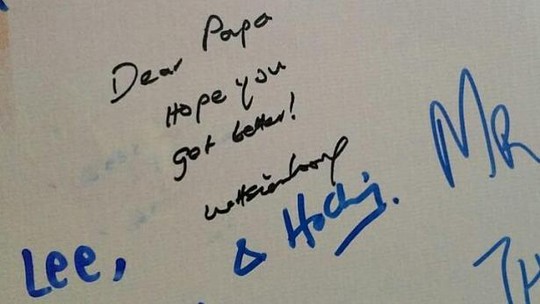 Dear Papa
Hope you
got better!
& Ho Ching.
MR
Lee,
TH